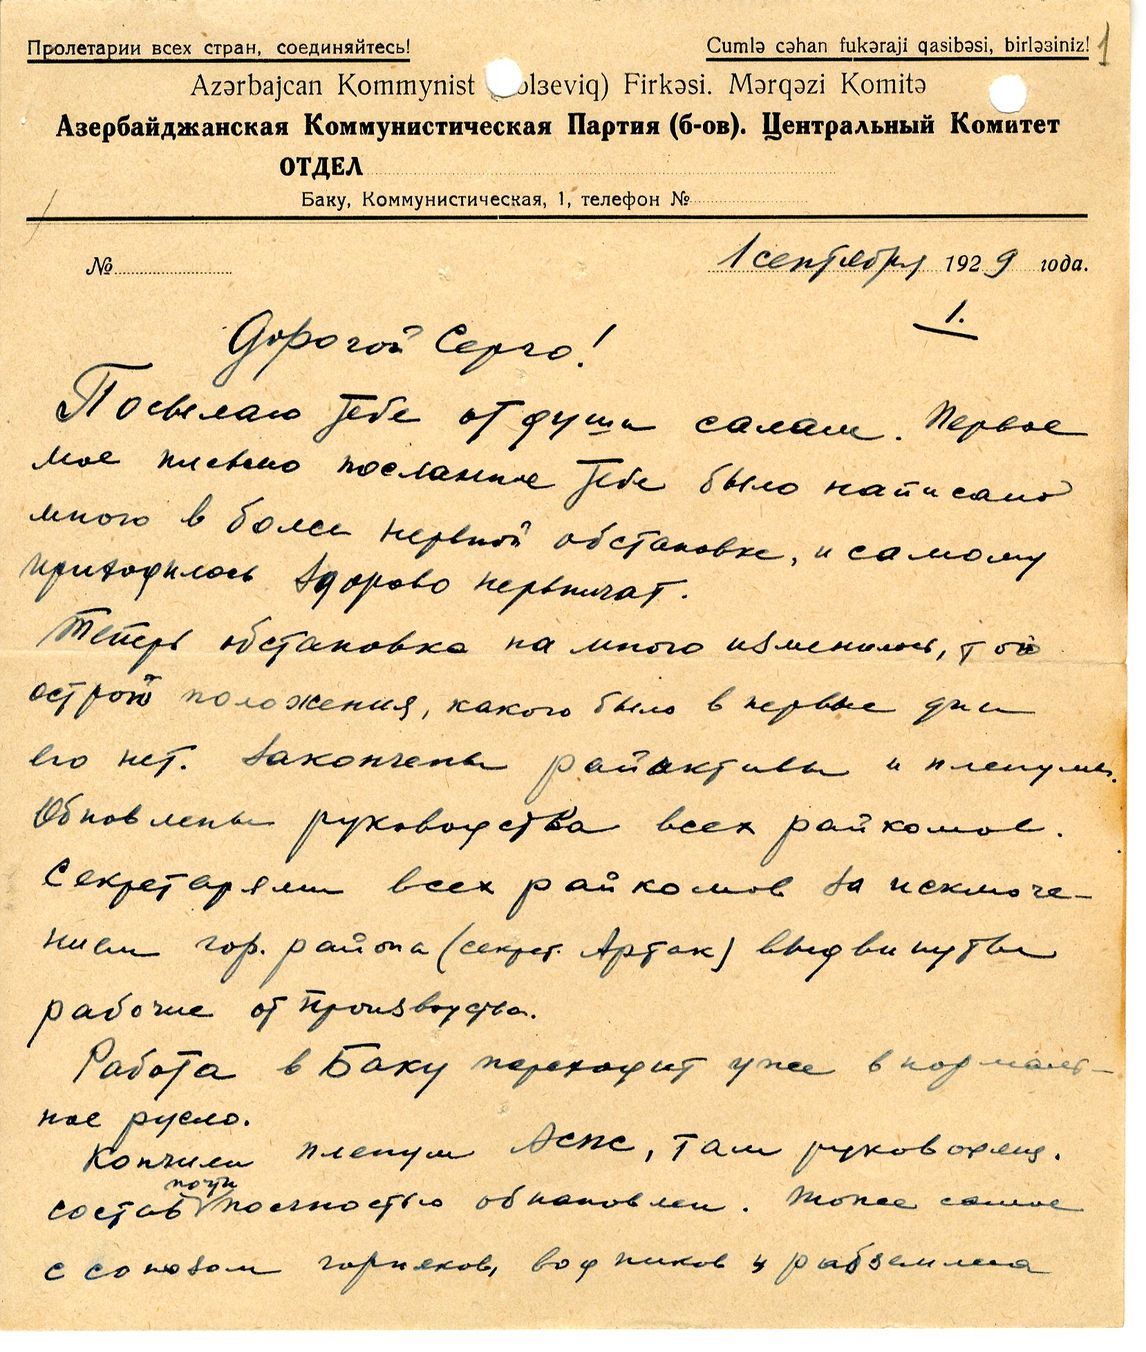 Пролетарии всех стран, соединяйтесь!
Cumlə cəhan fukəraji qasibəsi, birləsiniz!
1
Azərbajcan Kommynist olзeviq) Firkəsi. Mərqəzi Komitə
Азербайджанская Коммунистическая Партия (б-ов). Центральный Комитет
ОТДЕЛ
Баку, Коммунистическая, 1, телефон №
№ 1 сентября 1929 года.
1.
Дорогой Серго!
Посылаю тебе от души салам. Первое
мое письмо посланное тебе было написано
много в более нервной обстановке, и самому
приходилось здорово нервничат.
Теперь обстановка на много изменилось, той
острой положения, какого было в первые дни
его нет. Закончены райактивы и пленумы.
Обновлены руководства всех райкомов.
Секретарями всех райкомов за исключе-
нием гор. района (секрет. Артак) выдвинуты
рабочие от производства.
Работа в Баку переходит уже в нормаль-
ное русло.
Кончили пленум АСПС, там руководящ.
состав почти полностью обнановлен. Тоже самое
с союзом горняков, водников и рабземлеса